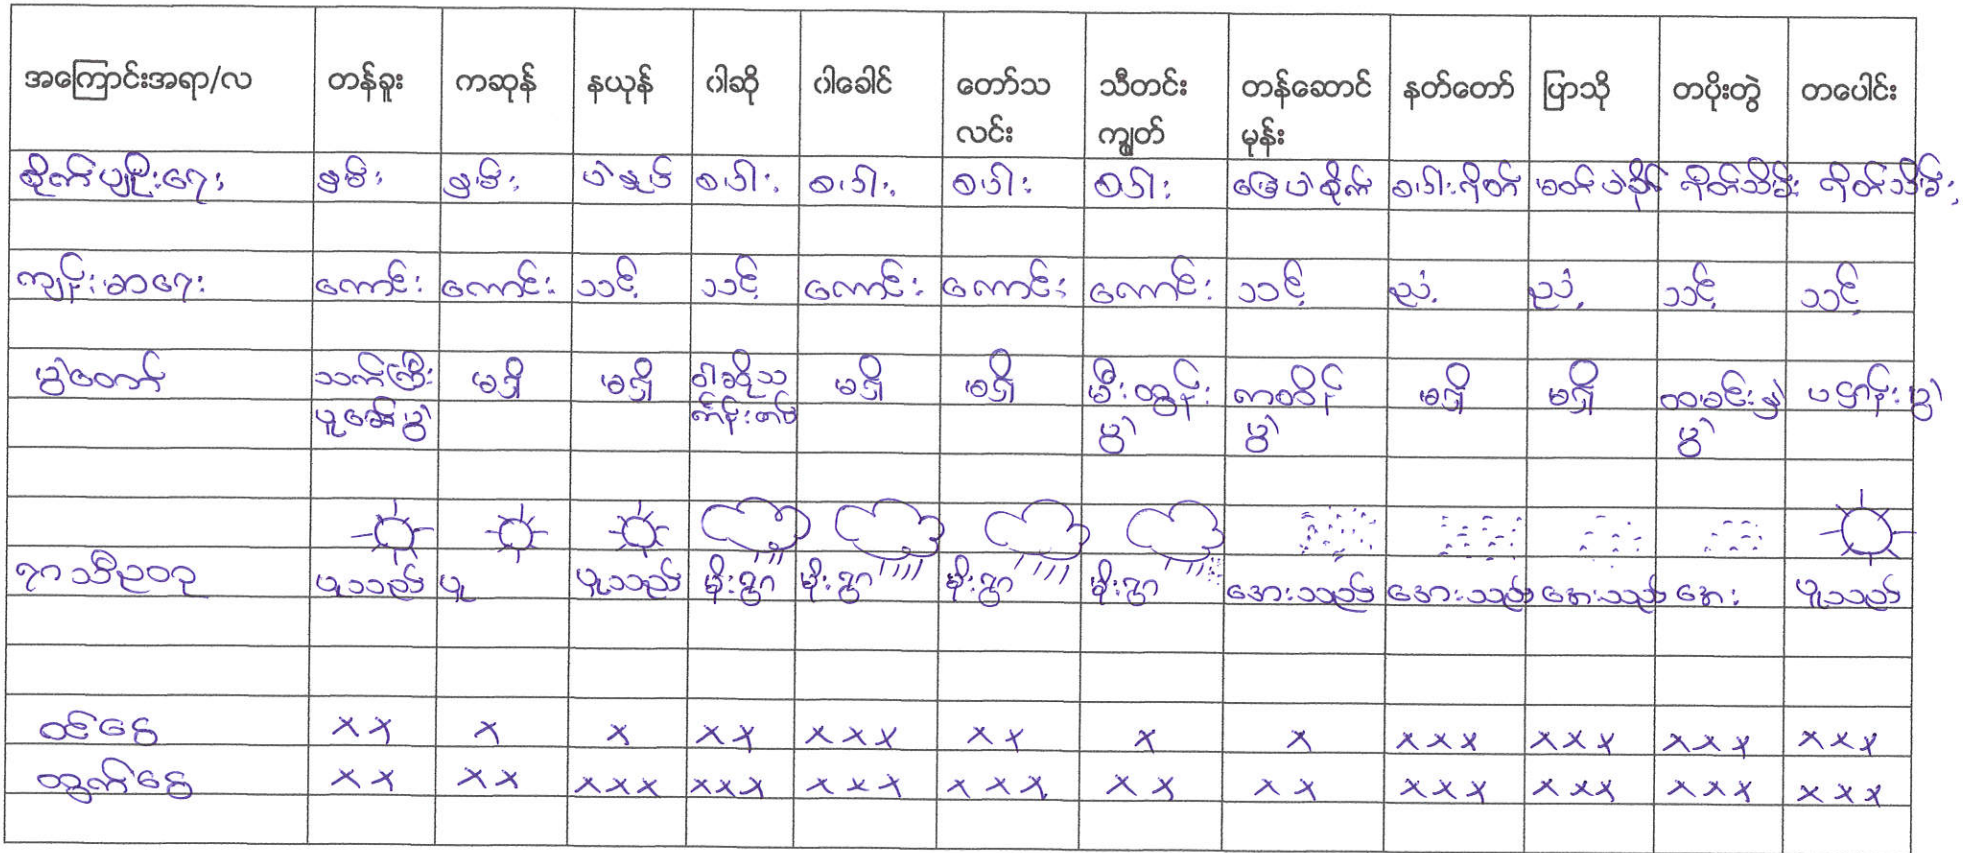 အကြောင်းအရာ/လ တန်ခူး ကဆုန် နယုန် ဝါဆို ဝါခေါင် တော်သလင်း သီတင်းကျွတ် တန်ဆောင်မုန်း နတ်တော် ပြာသို တပိုးတွဲ တပေါင်း
စိုက်ပျိုးရေး နှမ်း နှမ်း ပဲနုပ် စပါး စပါး စပါး စပါး မြေပဲစိုက် စပါးရိတ် မတ်ပဲစိုက် ရိတ်သိမ်း ရိတ်သိမ်း
ကျန်းမာရေး ကောင်း ကောင်း သင့် သင့် ကောင်း ကောင်း ကောင်း သင့် ညံ့ ညံ့ သင့် သင့်
ပွဲတော် သက်ကြီး မရှိ မရှိ ဝါဆိုသ မရှိ မရှိ မီးထွန်း ကထိန် မရှိ မရှိ ထမင်းနှဲ ပဌာန်းပွဲ
ပူဇော်ပွဲ င်္ကန်းကပ် ပွဲ ပွဲ ပွဲ
ရာသီဥတု ပူသည် ပူ ပူသည် မိုးရွာ မိုးရွာ မိုးရွာ မိုးရွာ အေးသည် အေးသည် အေးသည် အေး ပူသည်
ဝင်ငွေ xx x x xx xxx xx x x xxx xxx xxx xxx
ထွက်ငွေ xx xx xxx xxx xxx xxx xx xx xxx xxx xxx xxx